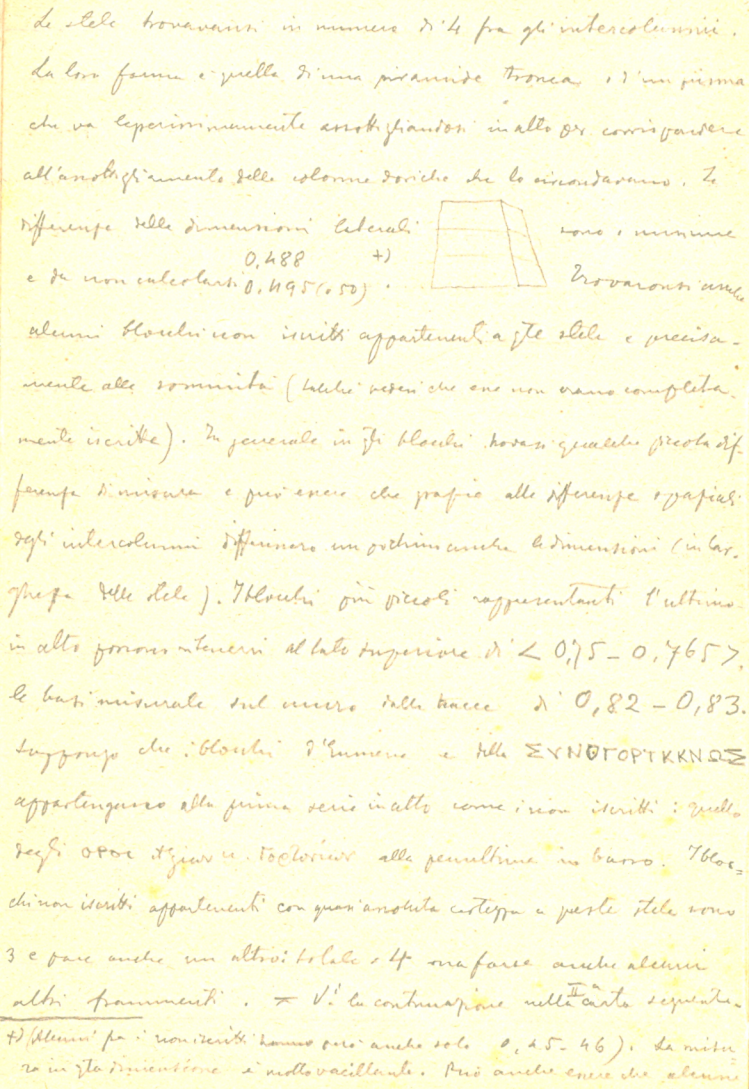 Le stele trovavansi in numero di 4 fra gli intercolumnii.
La loro forma è quella di una piramide tronca, o d'un prisma
che va leggerissimamente assottigliandosi in alto per corrispondere
all'assottigliamento delle colonne doriche che lo circondavano. Le
differenze delle dimensioni laterali sono minime
e da non calcolarsi 0,488 0,495 (0.50) +) . Trovaronsi anche
alcuni blocchi non iscritti appartenenti a qte stele e precisa-
mente alle sommità ( che esse non erano completa-
mente iscritte). In generale in gli blocchi trovasi qualche piccola dif-
ferenza di misura e può essere che grazie alle differenze spaziali
degli intercolumni differissero un pochino anche le dimensioni (in lar-
ghezza delle stele). I blocchi più piccoli rappresentanti l'ultimo
in alto possono ritenersi al lato superiore di < 0,75 – 0,765 >.
le basi misurate sul muro dalle tracce di 0,82 – 0,83.
Suppongo che i blocchi d'Eumene e della ΣΥΝΘΓΟΡΤΚΚΝΩΣ
appartengano alla prima serie in alto come i non iscritti: quello
degli οροι alla penultima in basso. I bloc=
chi non iscritti appartenenti con quasi assoluta certezza a queste stele sono
3 e pare anche un altro: totale 4 forse anche alcuni
altri frammenti. = V. la continuazione nella II carta seguente.
+) (Alcuni fra i non iscritti hanno però anche solo 0,45-46). La misu
ra in qta dimensione è molto vacillante. Può anche essere che alcuni